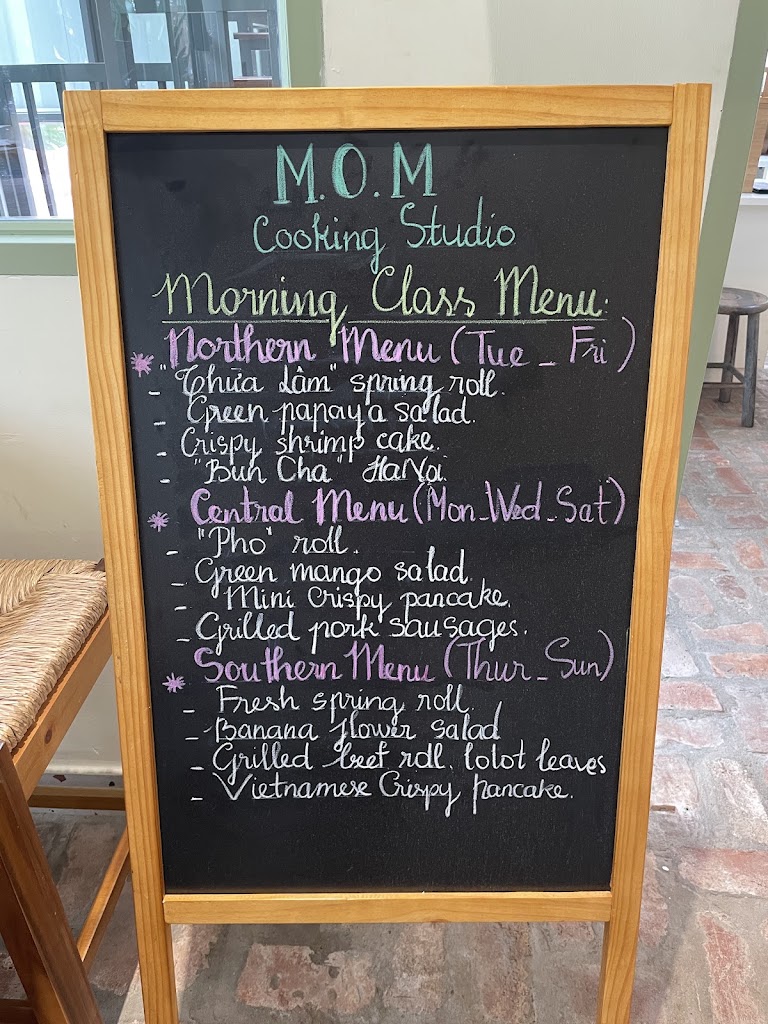 M.O.M
Cooking Studio
Morning Class Menu:
* Northern Menu (Tue _ Fri)
- "Thừa Lâm" spring roll.
- Green papaya salad.
- Crispy shrimp cake.
- "Bun Cha" HaNoi
* Central Menu (Mon_Wed_Sat)
- "Pho" roll.
- Green mango salad.
- Mini Crispy pancake.
- Grilled pork sausages.
* Southern Menu (Thur_Sun)
- Fresh spring roll.
- Banana flower salad
- Grilled beef roll. lolot leaves
- Vietnamese Crispy pancake.